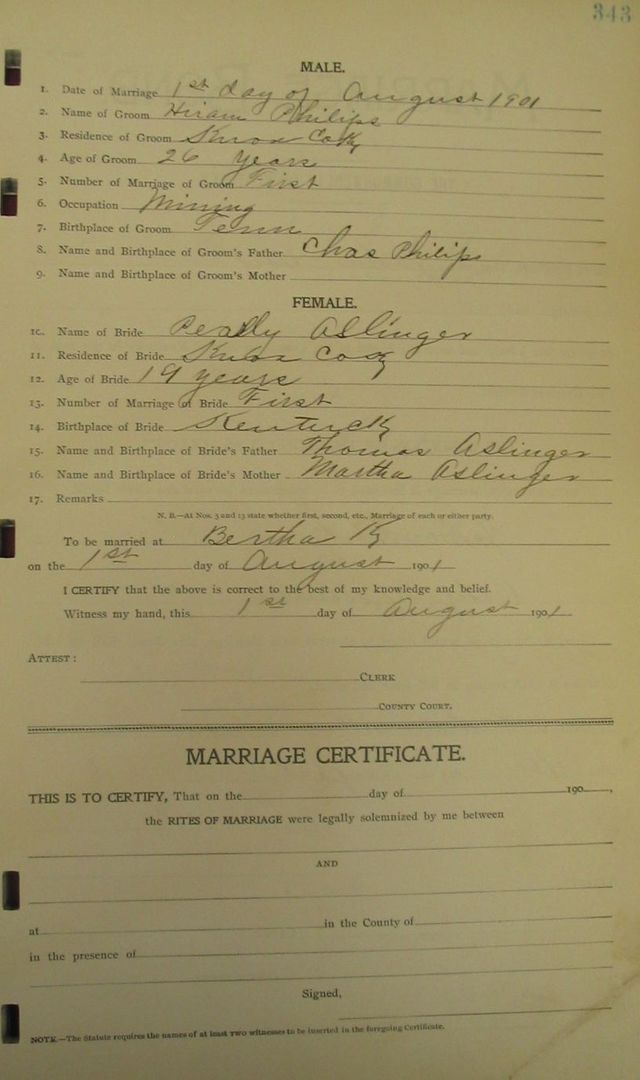 343
MALE.
1. Date of Marriage 1st day of August 1901
2. Name of Groom Hiram Philips
3. Residence of Groom Knox Co Ky
4. Age of Groom 26 years
5. Number of Marriage of Groom First
6. Occupation Mining
7. Birthplace of Groom Tenn
8. Name and Birthplace of Groom's Father Chas Philips
9. Name and Birthplace of Groom's Mother
FEMALE.
10. Name of Bride Aslinger
11. Residence of Bride Knox Co Ky
12. Age of Bride 19 years
13. Number of Marriage of Bride First
14. Birthplace of Bride Kentucky
15. Name and Birthplace of Bride's Father Thomas Aslinger
16. Name and Birthplace of Bride's Mother Martha Aslinger
17. Remarks
N. B.—At Nos. 5 and 13 state whether first, second, etc., Marriage of each or either party.
To be married at Bertha Ky
on the 1st day of August 1901
I CERTIFY that the above is correct to the best of my knowledge and belief.
Witness my hand, this 1st day of August 1901
ATTEST:
CLERK
COUNTY COURT.
MARRIAGE CERTIFICATE.
THIS IS TO CERTIFY, That on the day of 190 ,
the RITES OF MARRIAGE were legally solemnized by me between
AND
at in the County of
in the presence of
Signed,
NOTE.—The Statute requires the names of at least TWO witnesses to be inserted in the foregoing Certificate.